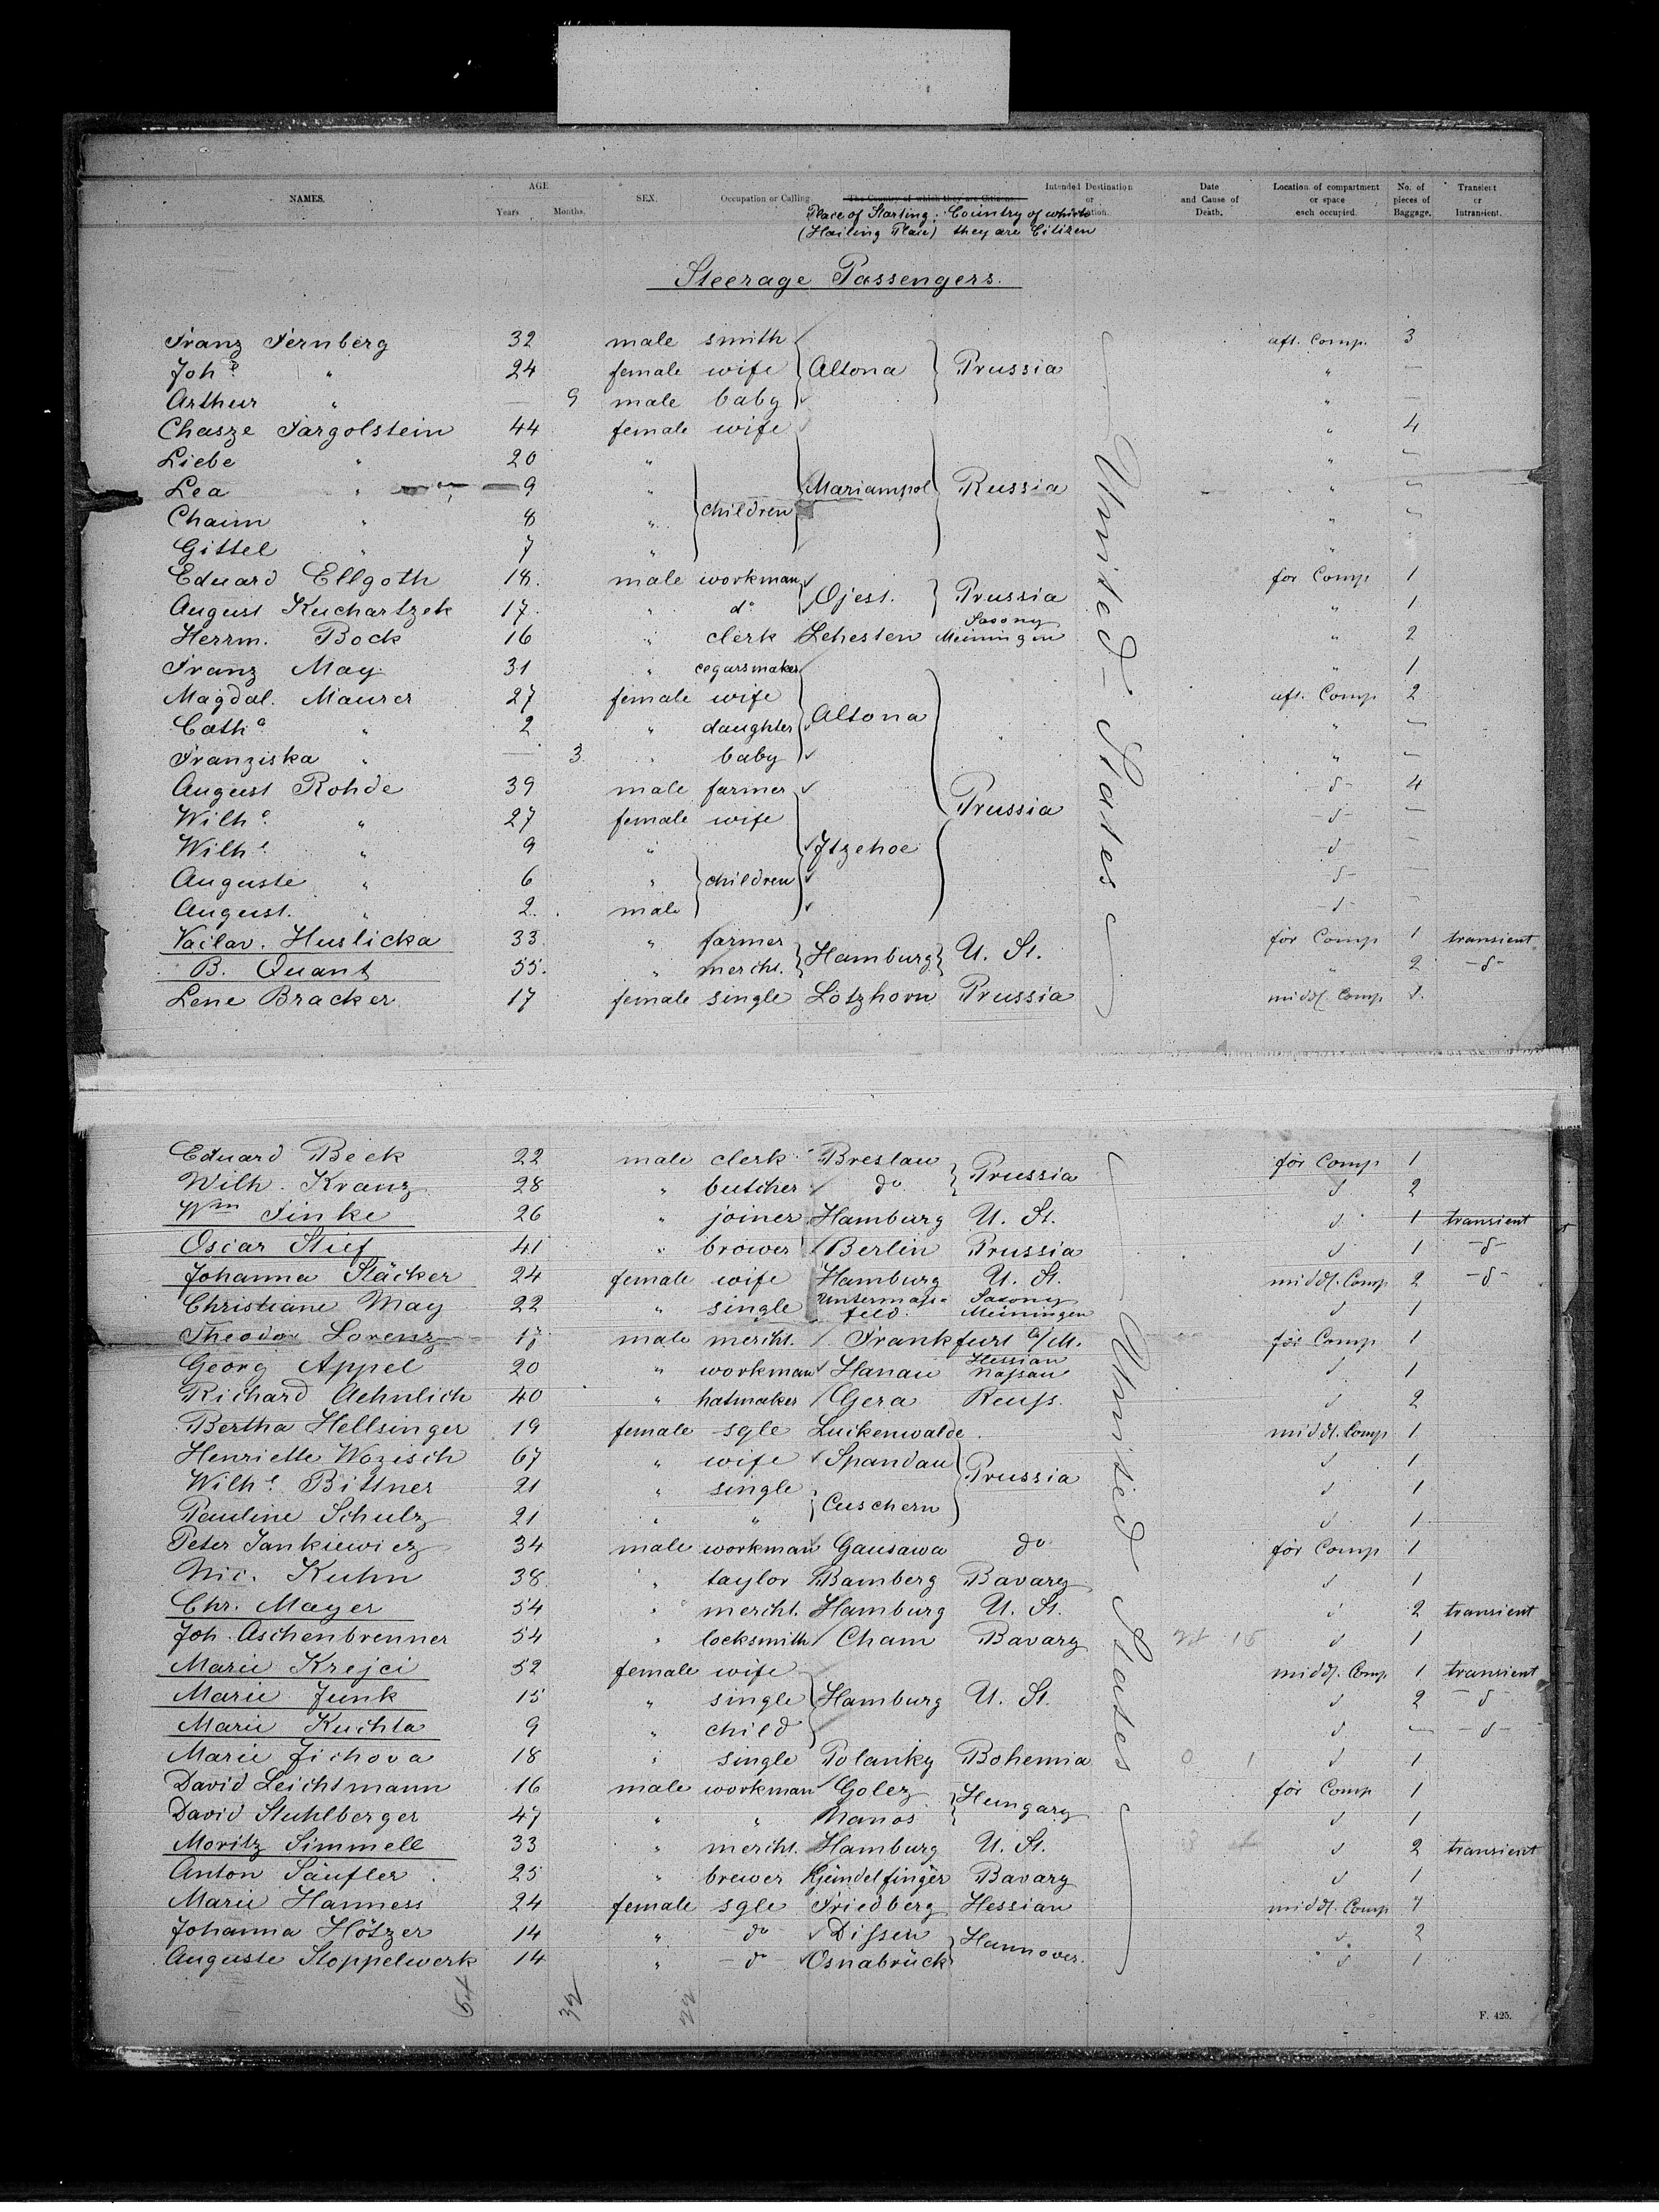 NAMES. AGE Years. Months. SEX. Occupation or Calling. The Country of which they are Citizens. Intended Destination or Date and Cause of Death. Location of compartment or space each occupied. No. of pieces of Baggage. Transient or Intransient.
Place of Starting: Country of which
(Hailing Place) they are Citizen
Steerage Passengers.
Franz Fernberg 32 male smith aft. Comp. 3
Joh.e " 24 female wife Altona Prussia " —
Arthur " — 9 male baby " —
Chasze Fargolstein 44 female wife " 4
Liebe " 20 " " —
Lea " 9 " Mariampol Russia " —
Chaim " 8 " children " —
Gittel " 7 " "
Eduard Ellgoth 18. male workman for Comp 1
August Kuchartzek 17. " do Ojest. Prussia " 1
Herrm. Bock 16 " clerk Lehesten Saxony Meiningen " 2
Franz May 31 " cegarsmaker " 1
Magdal. Maurer 27 female wife aft. Comp 2
Cath.a " 2 " daughter Altona " —
Franziska " — 3 " baby " —
August Rohde 39 male farmer -d- 4
Wilh.e " 27 female wife Prussia -d- —
Wilh.e " 9 " Itzehoe -d- —
Auguste " 6 " children -d- —
August. " 2 male -d- —
Vaclav. Huslicka 33 " farmer for Comp 1 transient
B. Quant 55. " mercht. Hamburg U. St. " 2 -d-
Lene Bracker 17 female single Lotzhorn Prussia middl. Comp
United States
Eduard Beck 22 male clerk Breslau for Comp 1
Wilh. Kranz 28 " butcher do Prussia d 2
Wm Finke 26 " joiner Hamburg U. St. d 1 transient
Oscar Stief 41 " brower Berlin Prussia d 1 -d-
Johanna Stäcker 24 female wife Hamburg U. St. middl. Comp 2 -d-
Christiane May 22 " single Untermaß- feld. Saxony Meiningen d 1
Theodor Lorenz 17 male mercht. Frankfurt a/M. for Comp 1
Georg Appel 20 " workman Hanau Hessian Naßau d 1
Richard Aehnlich 40 " hatmaker Gera Reuß. d 2
Bertha Hellsinger 19 female sgle Luckenwalde. middl. Comp 1
Henriette Wozisch 67 " wife Spandau d 1
Wilh.e Bittner 21 " single Prussia d 1
Pauline Schulz 21 " " Cuschern d 1
Peter Jankiewicz 34 male workman Gausawa do for Comp 1
Nic. Kuhn 38 " taylor Bamberg Bavary d 1
Chr. Mayer 54 " mercht. Hamburg U. St. d 2 transient
Joh. Aschenbrenner 54 " locksmith Cham Bavary d 1
Marie Krejci 52 female wife middl. Comp 1 transient
Marie Junk 15 " single Hamburg U. St. d 2 -d-
Marie Kuchta 9 " child d — -d-
Marie Jichova 18 " single Polanky Bohemia 0 1 d 1
David Leichtmann 16 male workman Golez for Comp 1
David Stuhlberger 47 " " Manos Hungary d 1
Moritz Simmell 33 " mercht. Hamburg U. St. d 2 transient
Anton Säufler 25 " brewer Gündelfinger Bavary d 1
Marie Hanness 24 female sgle Friedberg Hessian middl. Comp 1
Johanna Hötzer 14 " do Dißen d 2
Auguste Stoppelwerk 14 " -do- Osnabrück Hannover. d 1
United States
54 32 22
F. 425.